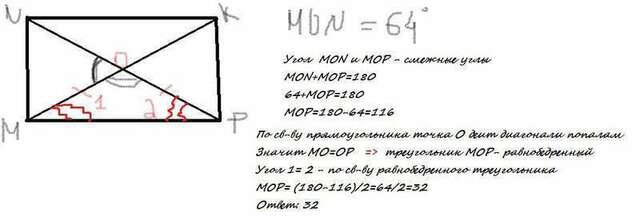 N
K
MON = 64°
O
1
2
M
P
Угол MON и MOP - смежные углы
MON+MOP=180
64+MOP=180
MOP=180-64=116
По св-ву прямоугольника точка О деит диагонали попалам
Значит МО=ОР => треугольник МОР- равнобедренный
Угол 1= 2 - по св-ву равнобедренного треугольника
MOP= (180-116)/2=64/2=32
Ответ: 32